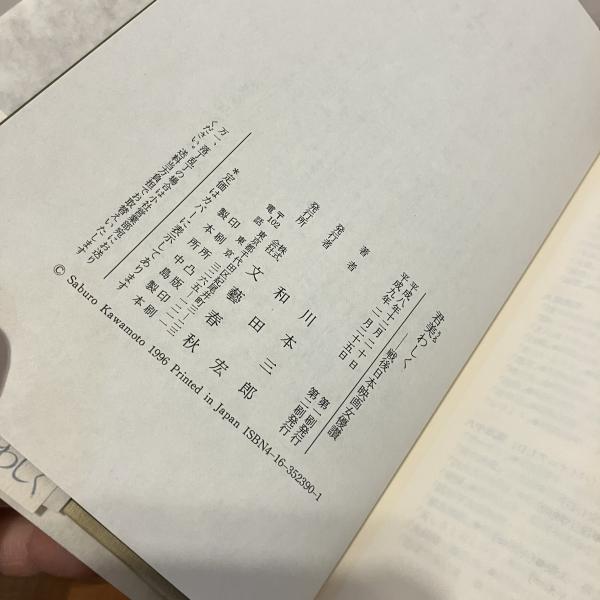 君美わしく
うる
——戦後日本映画女優讃
平成八年十二月二十日　第一刷発行
平成九年二月二十五日　第二刷発行
著者　川本三郎
発行者　和田宏
発行所　株式会社　文藝春秋
〒102 東京都千代田区紀尾井町三―二三
電話　東京
印刷所　凸版印刷
製本所　中島製本
*定価はカバーに表示してあります
万一、落丁乱丁の場合は小社営業部宛にお送り
ください。送料当方負担でお取替えいたします
© Saburo Kawamoto 1996 Printed in Japan ISBN4-16-352390-1
わしく